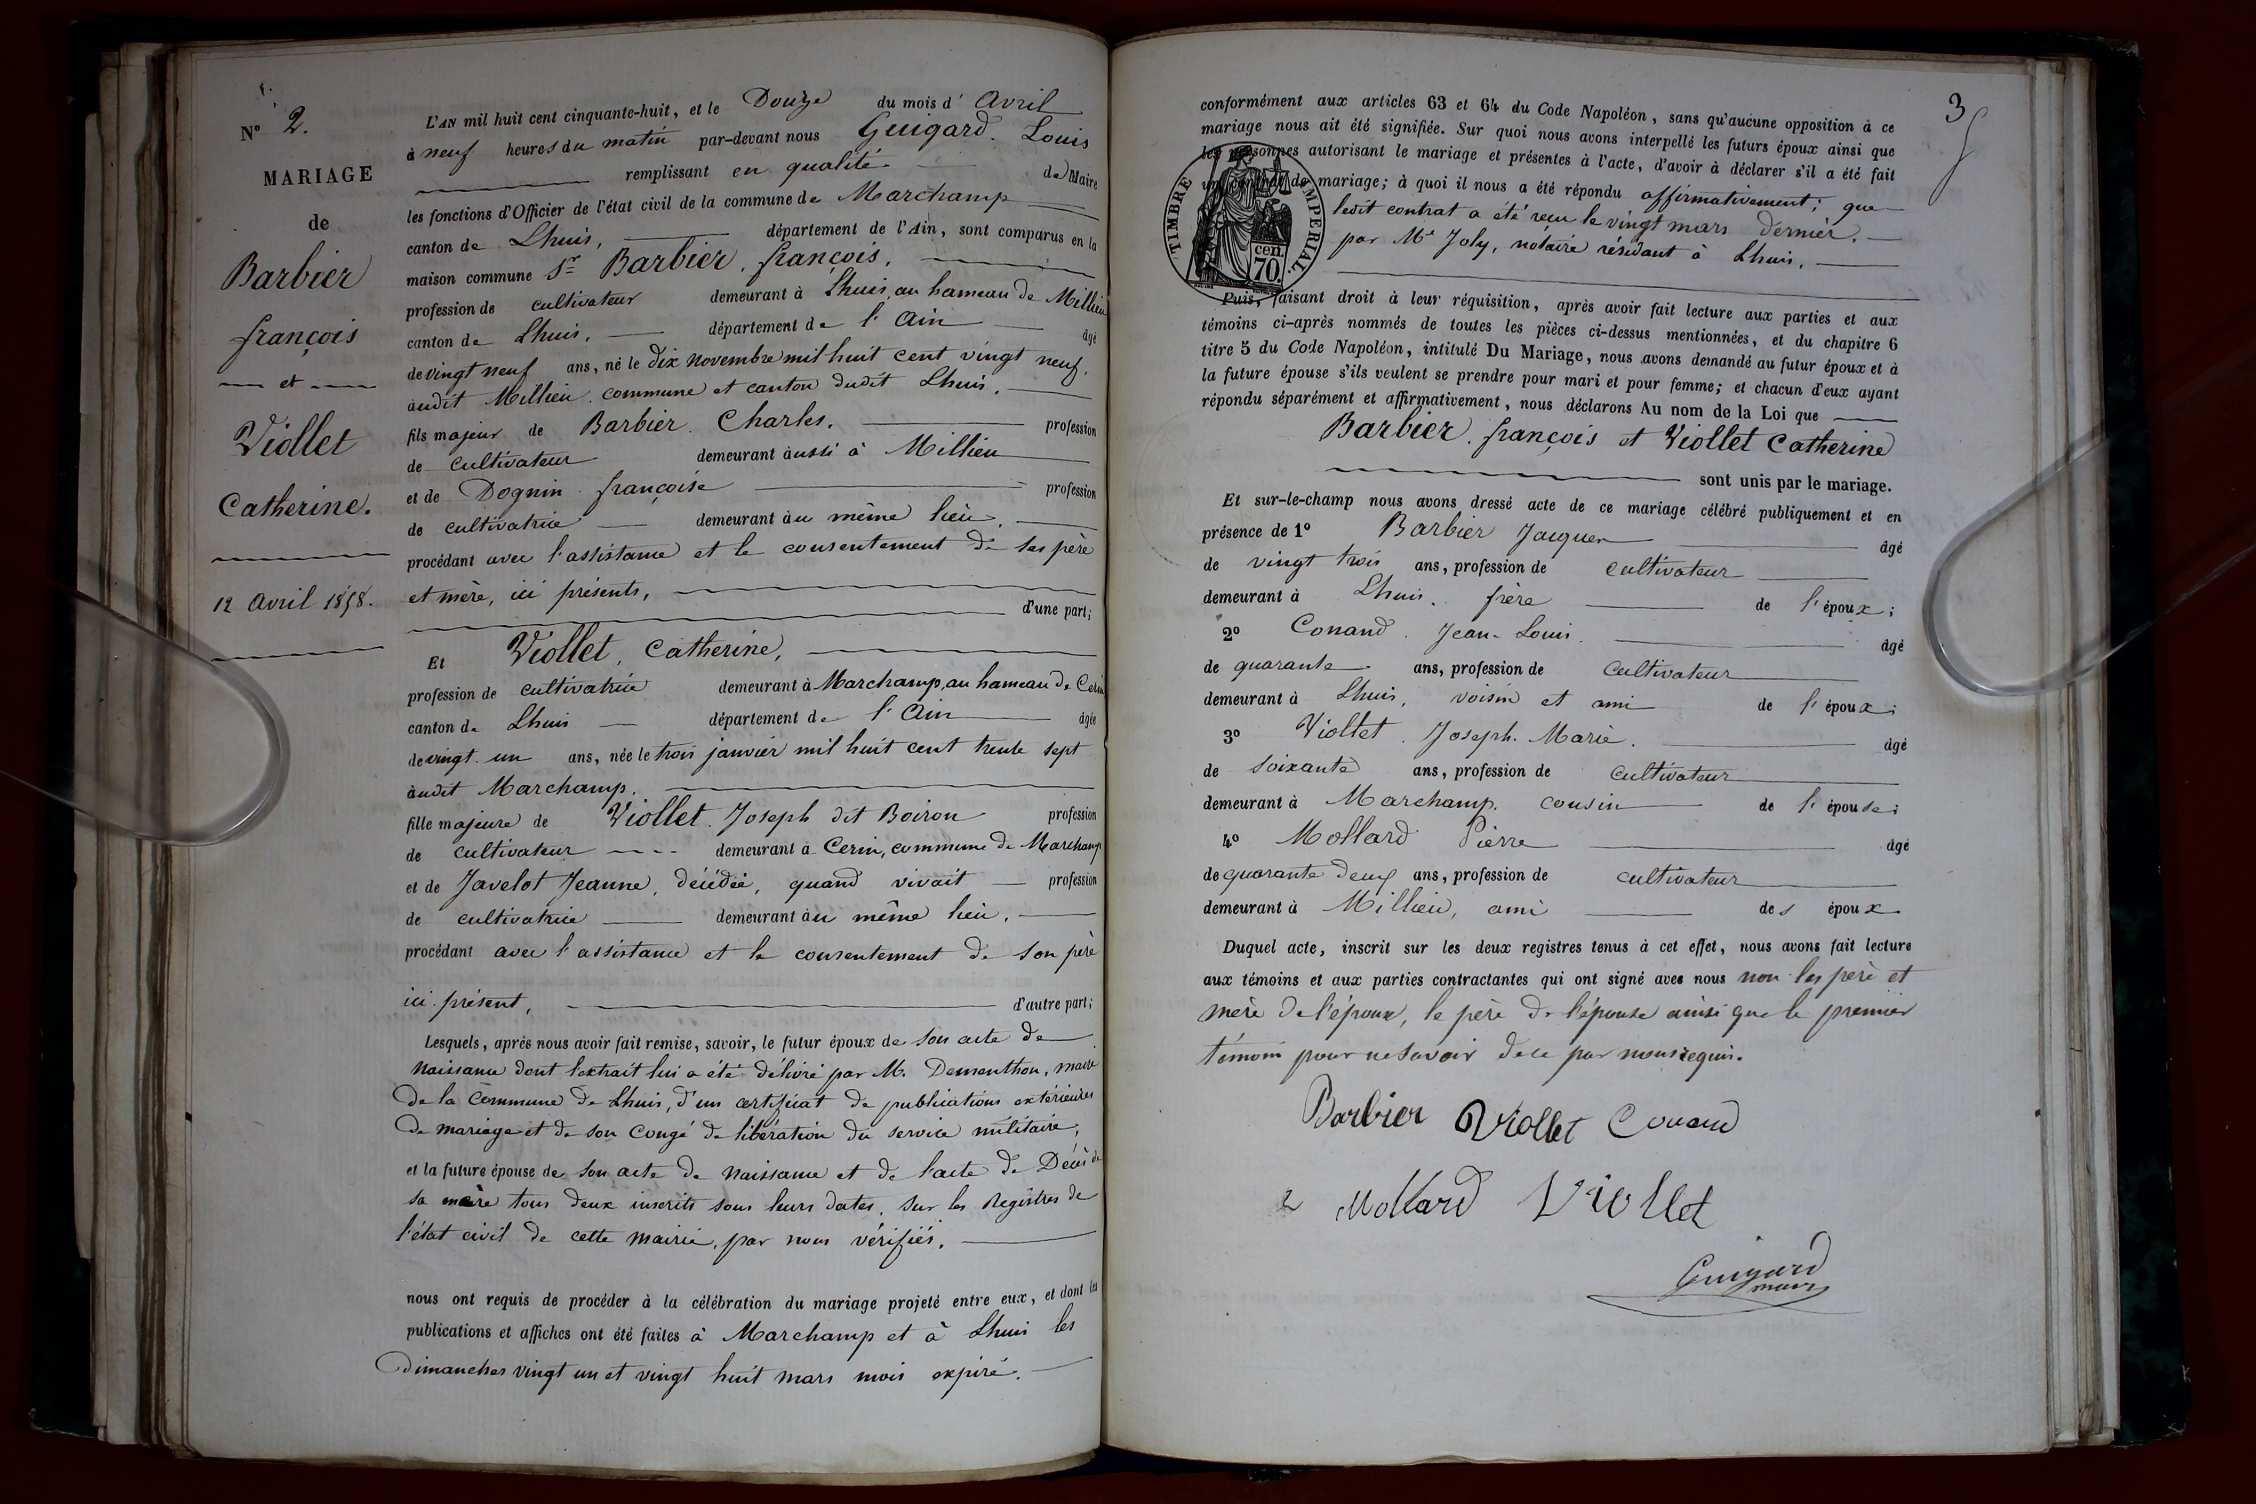 Nº 2.
MARIAGE
de
Barbier
françois
et
Viollet
Catherine.
12 Avril 1858.
L'AN mil huit cent cinquante-huit, et le Douze du mois d' Avril
à neuf heures du matin par-devant nous Guigard. Louis
remplissant en qualité de Maire
les fonctions d'Officier de l'état civil de la commune de Marchamp
canton de Lhuis, département de l'Ain, sont comparus en la
maison commune Sr Barbier, françois,
profession de cultivateur demeurant à Lhuis, au hameau de Millieu
canton de Lhuis, département de l'Ain âgé
de vingt neuf ans, né le dix novembre mil huit cent vingt neuf,
audit Millieu commune et canton dudit Lhuis,
fils majeur de Barbier Charles, profession
de cultivateur demeurant aussi à Millieu
et de Dognin françoise profession
de cultivatrice demeurant au même lieu,
procédant avec l'assistance et le consentement de ses père
et mère, ici présents,
d'une part;
Et Viollet, Catherine,
profession de cultivatrice demeurant à Marchamp, au hameau de Cerin
canton de Lhuis département de l'Ain âgée
de vingt-un ans, née le trois janvier mil huit cent trente sept
audit Marchamp.
fille majeure de Viollet Joseph dit Boiron profession
de cultivateur demeurant à Cerin, commune de Marchamp
et de Javelot Jeanne, décédée, quand vivait profession
de cultivatrice demeurant au même lieu,
procédant avec l'assistance et le consentement de son père
ici présent, d'autre part;
Lesquels, après nous avoir fait remise, savoir, le futur époux de son acte de
naissance dont l'extrait lui a été délivré par M. Dementhon, maire
de la Commune de Lhuis, d'un certificat de publications extérieures
de mariage et de son Congé de libération du service militaire,
et la future épouse de son acte de naissance et de l'acte de Décès de
sa mère tous deux inscrits sous leurs dates, sur les Registres de
l'état civil de cette mairie, par nous vérifiés,
nous ont requis de procéder à la célébration du mariage projeté entre eux, et dont les
publications et affiches ont été faites à Marchamp et à Lhuis les
Dimanches vingt un et vingt huit mars mois expiré.
3
conformément aux articles 63 et 64 du Code Napoléon, sans qu'aucune opposition à ce
mariage nous ait été signifiée. Sur quoi nous avons interpellé les futurs époux ainsi que
les personnes autorisant le mariage et présentes à l'acte, d'avoir à déclarer s'il a été fait
un contrat de mariage; à quoi il nous a été répondu affirmativement; que
ledit contrat a été reçu le vingt mars dernier,
par Me Joly, notaire résidant à Lhuis,
TIMBRE IMPERIAL.
cen. 70
Puis, faisant droit à leur réquisition, après avoir fait lecture aux parties et aux
témoins ci-après nommés de toutes les pièces ci-dessus mentionnées, et du chapitre 6
titre 5 du Code Napoléon, intitulé Du Mariage, nous avons demandé au futur époux et à
la future épouse s'ils veulent se prendre pour mari et pour femme; et chacun d'eux ayant
répondu séparément et affirmativement, nous déclarons Au nom de la Loi que
Barbier, françois et Viollet Catherine
sont unis par le mariage.
Et sur-le-champ nous avons dressé acte de ce mariage célébré publiquement et en
présence de 1º Barbier Jacques âgé
de vingt trois ans, profession de cultivateur
demeurant à Lhuis, frère de l'époux;
2º Conand Jean-Louis âgé
de quarante ans, profession de cultivateur
demeurant à Lhuis, voisin et ami de l'époux;
3º Viollet Joseph Marie. âgé
de soixante ans, profession de cultivateur
demeurant à Marchamp cousin de l'épouse;
4º Mollard Pierre âgé
de quarante deux ans, profession de cultivateur
demeurant à Millieu, ami des époux
Duquel acte, inscrit sur les deux registres tenus à cet effet, nous avons fait lecture
aux témoins et aux parties contractantes qui ont signé avec nous non les père et
mère de l'époux, le père de l'épouse ainsi que le premier
témoin pour ne savoir de ce par nous requis.
Barbier Viollet Conand
Mollard Viollet
Guigard
maire